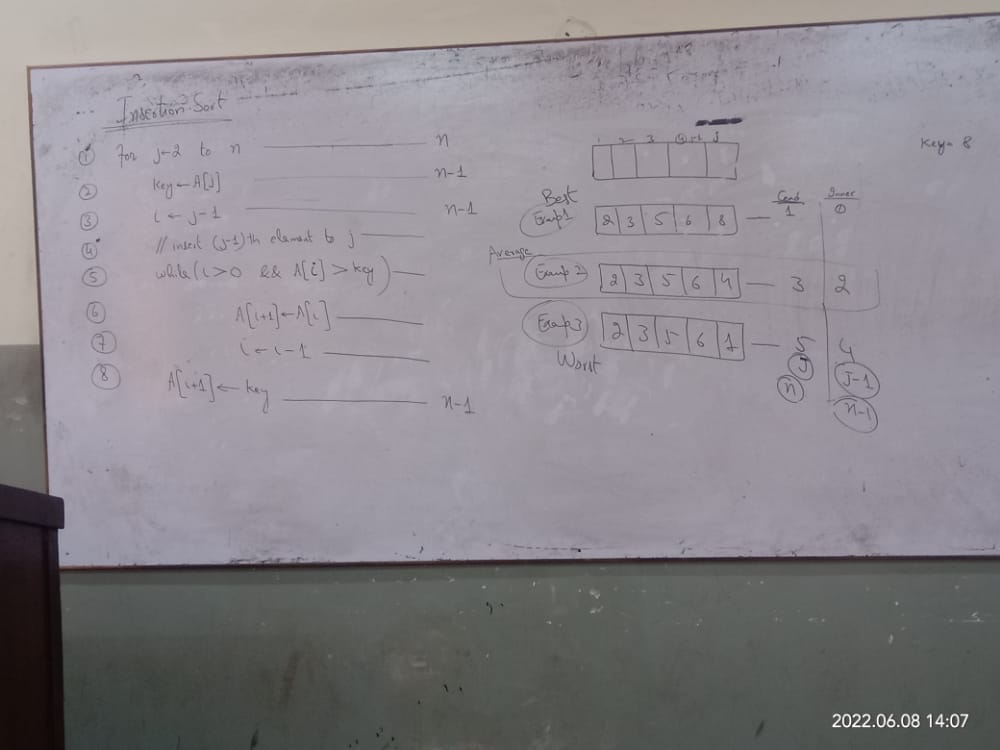 Insertion Sort
① for j←2 to n n
② key ← A[j] n-1
③ i ← j-1 n-1
④ // insert (j-1)th element to j
⑤ while(i>0 && A[i] > key)
⑥ A[i+1] ← A[i]
⑦ i ← i-1
⑧ A[i+1] ← key n-1
1 2 3 j
key= 8
Best Cond Inner
Examp1 2 3 5 6 8 — 1 0
Average
Examp2 2 3 5 6 4 — 3 2
Examp3 2 3 5 6 1 — 5 4
Worst
j j-1
n n-1
2022.06.08 14:07